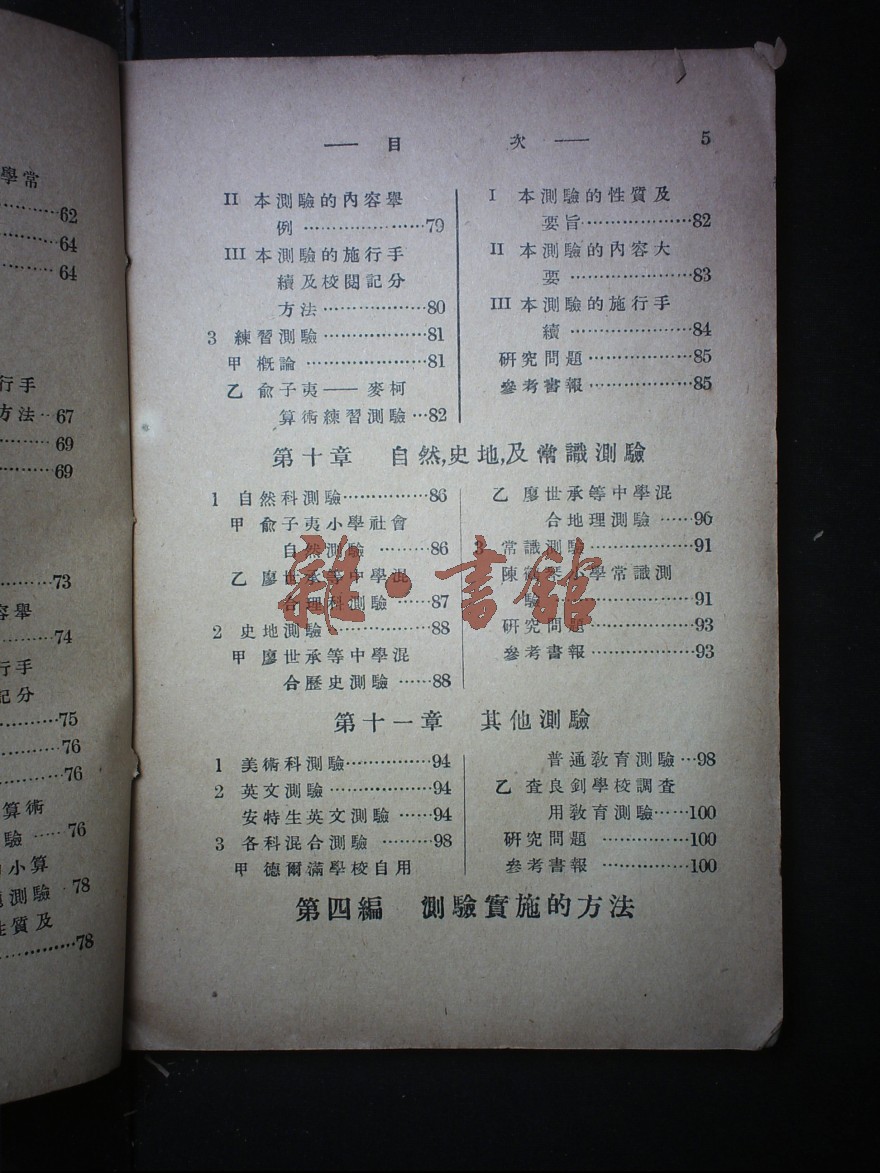 學常
62
64
64
行手
方法 67
69
69
73
容舉
74
行手
記分
75
76
76
算術
驗 76
小算
測驗 78
性質及
78
—— 目 次 —— 5
II 本測驗的內容舉
例 79
III 本測驗的施行手
續及校閱記分
方法 80
3 練習測驗 81
甲 概論 81
乙 俞子夷——麥柯
算術練習測驗 82
I 本測驗的性質及
要旨 82
II 本測驗的內容大
要 83
III 本測驗的施行手
續 84
研究問題 85
參考書報 85
第十章 自然,史地,及常識測驗
1 自然科測驗 86
甲 俞子夷小學社會
自然測驗 86
乙 廖世承等中學混
合理科測驗 87
2 史地測驗 88
甲 廖世承等中學混
合歷史測驗 88
乙 廖世承等中學混
合地理測驗 96
3 常識測驗 91
陳鶴琴小學常識測
驗 91
研究問題 93
參考書報 93
雜·書館
第十一章 其他測驗
1 美術科測驗 94
2 英文測驗 94
安特生英文測驗 94
3 各科混合測驗 98
甲 德爾滿學校自用
普通教育測驗 98
乙 查良釗學校調查
用教育測驗 100
研究問題 100
參考書報 100
第四編 測驗實施的方法